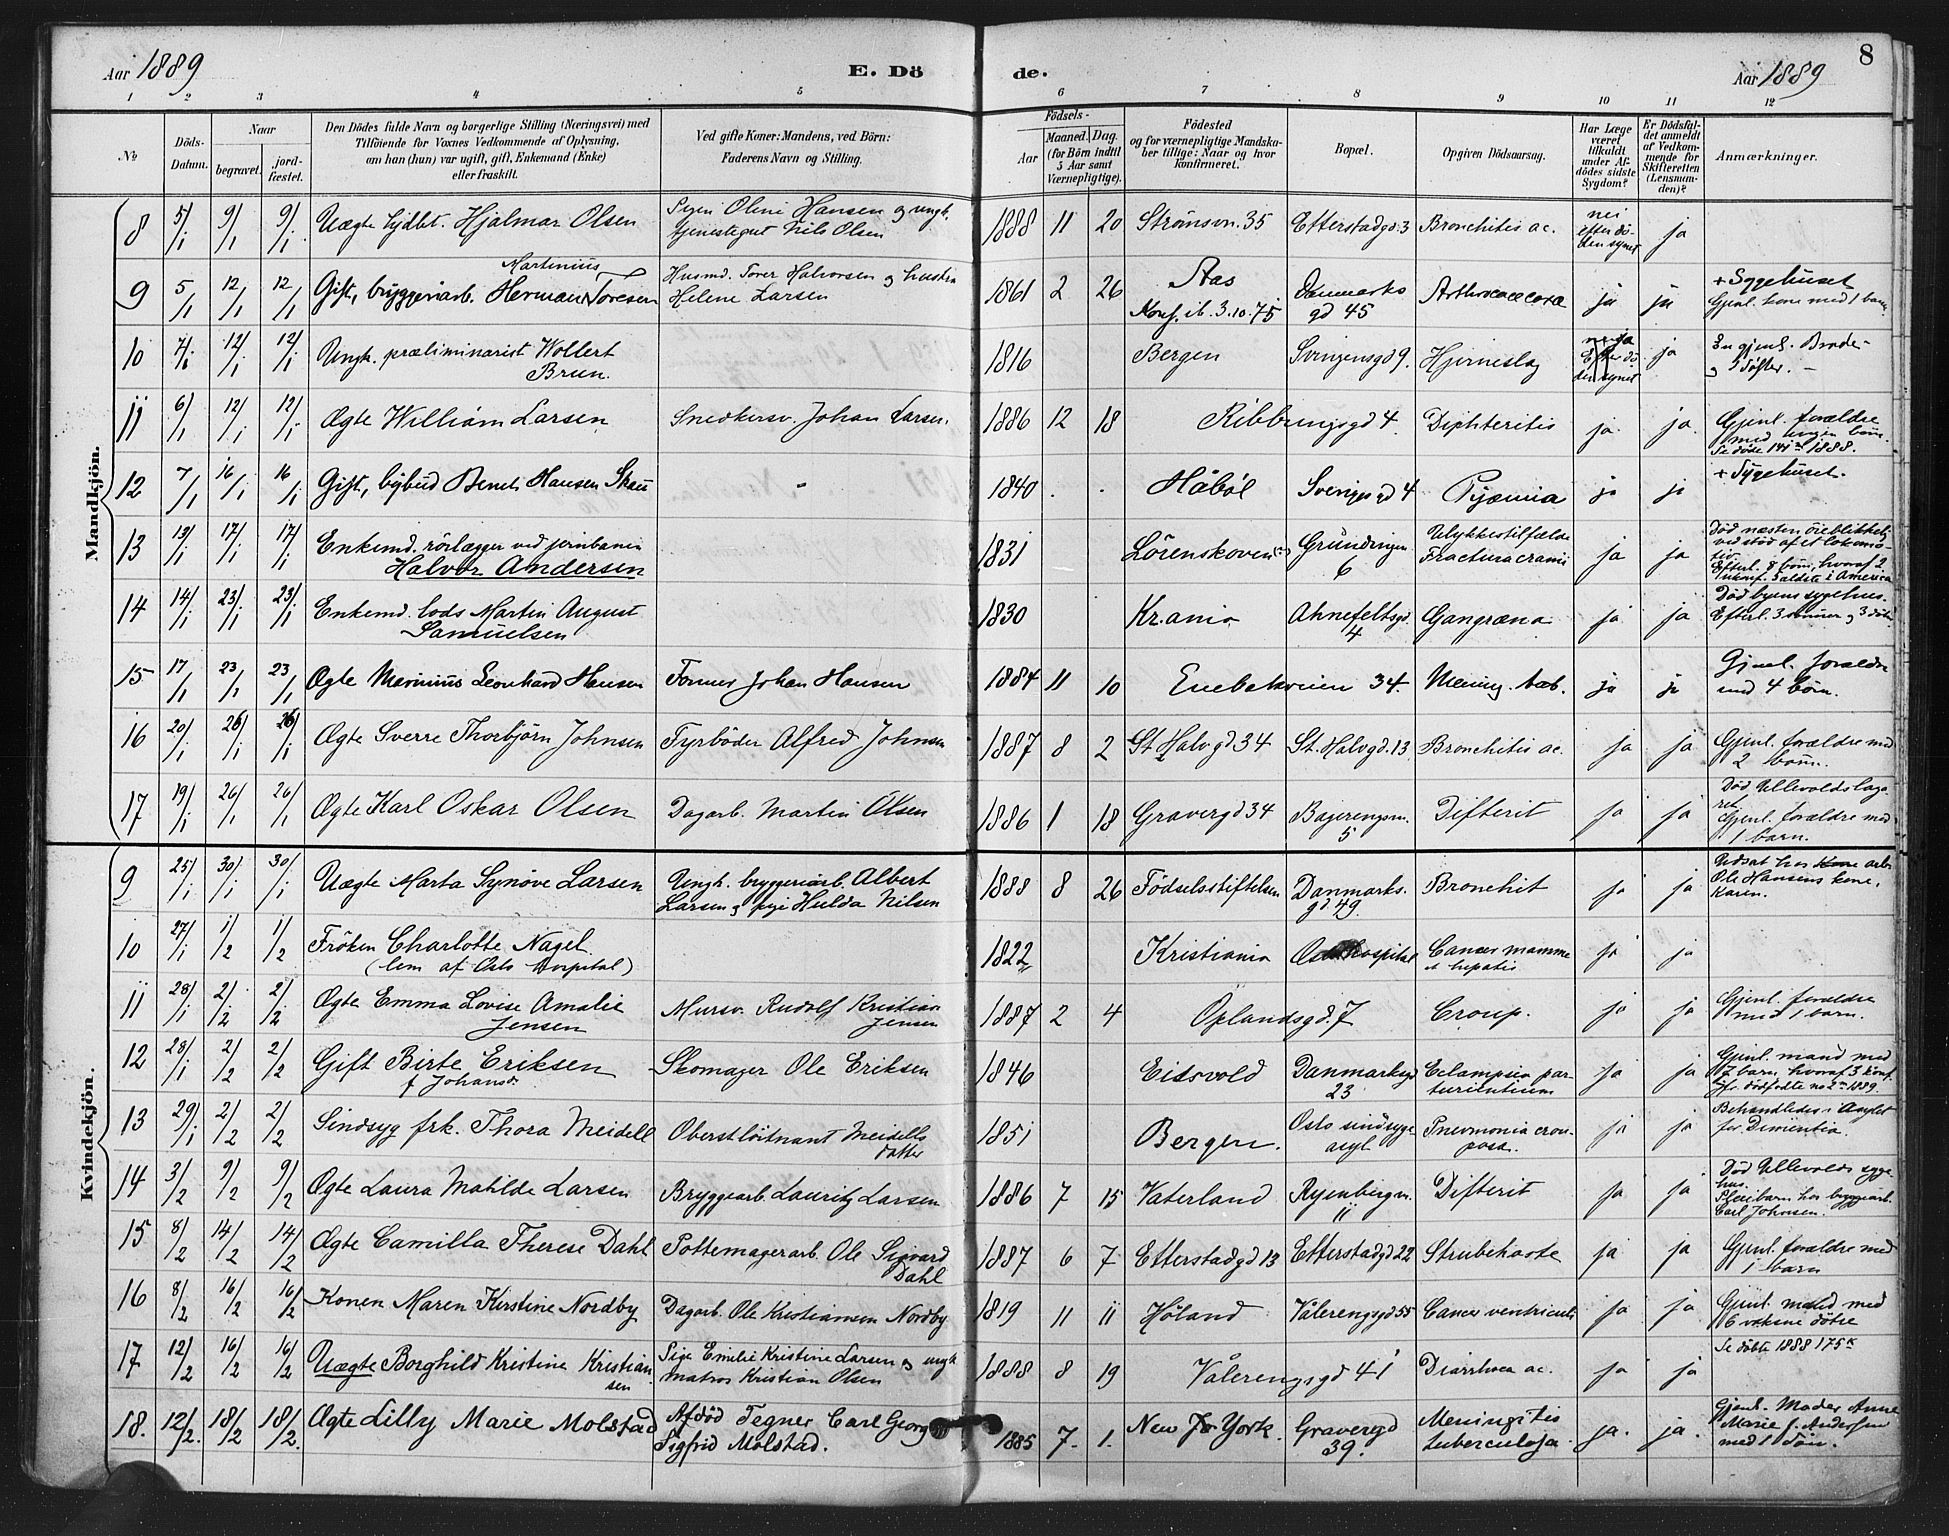 Aar 1889
E. Döde.
Aar 1889
8
1 2 3 4 5 6 7 8 9 10 11 12
No
Döds-Datum.
Naar
begravet.
jord-fæstet.
Den Dödes fulde Navn og borgerlige Stilling (Næringsvei) med
Tilföiende for Voxnes Vedkommende af Oplysning,
om han (hun) var ugift, gift, Enkemand (Enke)
eller fraskilt.
Ved gifte Koner: Mandens, ved Börn:
Faderens Navn og Stilling.
Födsels-
Aar
Maaned.
Dag.
(for Börn indtil
5 Aar samt
Værnepligtige).
Födested
og for værnepligtige Mandska-
ber tillige: Naar og hvor
konfirmeret.
Bopæl.
Opgiven Dödsaarsag.
Har Læge
været
tilkaldt
under Af-
dödes sidste
Sygdom?
Er Dödsfal-
det anmeldt
af Vedkom-
mende for
Skifteretten
(Lensman-
den)?
Anmærkninger.
Mandkjön.
8 5/1 9/1 9/1 Uægte Hjalmar Olsen Pigen Oline Hansen og ungk. tjenestegut Nils Olsen 1888 11 20 Strömsvn. 35 Etterstadgd. 3 Bronchitis ac. nei efter döden synet ja
9 5/1 12/1 12/1 Gift, bryggeriarb. Herman Martinius Toresen Husmd. Torer Halvorsen og hustru Helene Larsen 1861 2 26 Aas Konf. ib. 3.10.75 Danmarks gd 45 ja ja + Sygehuset Gjenl. kone med 1 barn
10 7/1 12/1 12/1 Ungk. præliminarist Wollert Brun. 1816 Bergen Svingensgd 9. Hjerneslag Efter döden synet ja En gjenl. Broder og 3 Söstre.
11 6/1 12/1 12/1 Ægte William Larsen Snedkersv. Johan Larsen. 1886 12 18 Ribbungsgd 4 Diphteritis ja ja Gjenl. forældre med ingen börn. Se döde 1888.
12 7/1 16/1 16/1 Gift, bybud Bernt Hansen Skau " 1840 . . Håböl Sverigesgd 4 Pyæmia ja ja + Sygehuset.
13 13/1 17/1 17/1 Enkemd. rörlægger ved jernbanen Halvor Andersen 1831 Lörenskoven Gründingen 6 Ulykkestilfælde Fractura cranii ja ja Död næsten öieblikkelig ved stöd af et lokomotiv. Efterl. 8 börn, hvoraf 2 ukonf. 3 aldste i America
14 14/1 23/1 23/1 Enkemd. lods Martin August Samuelsen 1830 Kr.ania Ahnefeltsgd. 4 Gangræna ja ja Död byens sygehus. Efterl. 3 sönner og 3 dötre
15 17/1 23/1 23/1 Ægte Marinius Leonhard Hansen Former Johan Hansen 1884 11 10 Enebakveien 34. Mening. tub. ja ja Gjenl. forældre med 4 börn.
16 20/1 26/1 26/1 Ægte Sverre Thorbjörn Johnsen Fyrböder Alfred Johnsen 1887 8 2 St Halvgd 34 St. Halvgd. 13 Bronchitis ac. ja ja Gjenl. forældre med 2 börn.
17 19/1 26/1 26/1 Ægte Karl Oskar Olsen Dagarb. Martin Olsen 1886 1 18 Gravergd 34 Bagerengsvn. 5 Difterit ja ja Död Ullevoldslazaret Gjenl. forældre med 1 barn.
Kvindekjön.
9 25/1 30/1 30/1 Uægte Marta Synöve Larsen Ungk. bryggeriarb. Albert Larsen og pige Hulda Nilsen 1888 8 26 Födselsstiftelsen Danmarks. gd. 49. Bronchit ja ja Udsat hos arb. Ole Hansens kone, Karen.
10 27/1 1/2 1/2 Fröken Charlotte Nagel (lem af Oslo Hospital) 1822 Kristiania Oslo Hospital Cancer mammæ et hepatis ja ja
11 28/1 2/2 2/2 Ægte Emma Lovise Amalie Jensen Mursv. Rudolf Kristian Jensen 1887 2 4 Oplandsgd. 7 Croup. ja ja Gjenl. forældre med 1 barn.
12 28/1 2/2 2/2 Gift Birte Eriksen f Johansd. Skomager Ole Eriksen 1846 Eidsvold Danmarksgd 23 Eclampsia parturientium ja ja Gjenl. mand med 7 barn, hvoraf 3 konf. Jf. dödfödte no 2 1889.
13 29/1 2/2 2/2 Sindsyg frk. Thora Meidell Oberstlöitnant Meidells datter 1851 Bergen. Oslo sindsygeasyl Pneumonia crouposa. ja ja Behandledes i Asylet for Dimentia.
14 3/2 9/2 9/2 Ægte Laura Matilde Larsen Bryggearb. Lauritz Larsen 1886 7 15 Vaterland Ryenbergvn. 11 Difterit ja ja Död Ullevolds sygehus. Pleiebarn hos bryggearb. Carl Johnsen.
15 8/2 14/2 14/2 Ægte Camilla Therese Dahl Pottemagerarb. Ole Sigvard Dahl 1887 6 7 Etterstadgd 13 Etterstadgd 22 Strubehoste ja ja Gjenl. forældre med 1 barn
16 8/2 16/2 16/2 Konen Maren Kirstine Nordby Dagarb. Ole Kristiansen Nordby 1819 11 11 Höland Vålerenggd 55 Cancer ventriculi ja ja Gjenl. mand med 6 voksne dötre
17 12/2 16/2 16/2 Uægte Borghild Kristine Kristiansen Pige Emilie Kristine Larsen og ungk Matros Kristian Olsen 1888 8 19 Vålerengsgd 41 Diarrhoea ac. ja ja Se döbte 1888 175
18. 12/2. 18/2 18/2. Ægte Lilly Marie Molstad Afdöd Tegner Carl Georg Sigfrid Molstad. 1885 7. 1. New York. Gravergd 39. Meningitis tuberculosa ja. ja. Gjenl. Moder Anne Marie f. Andersen med 1 Sön.